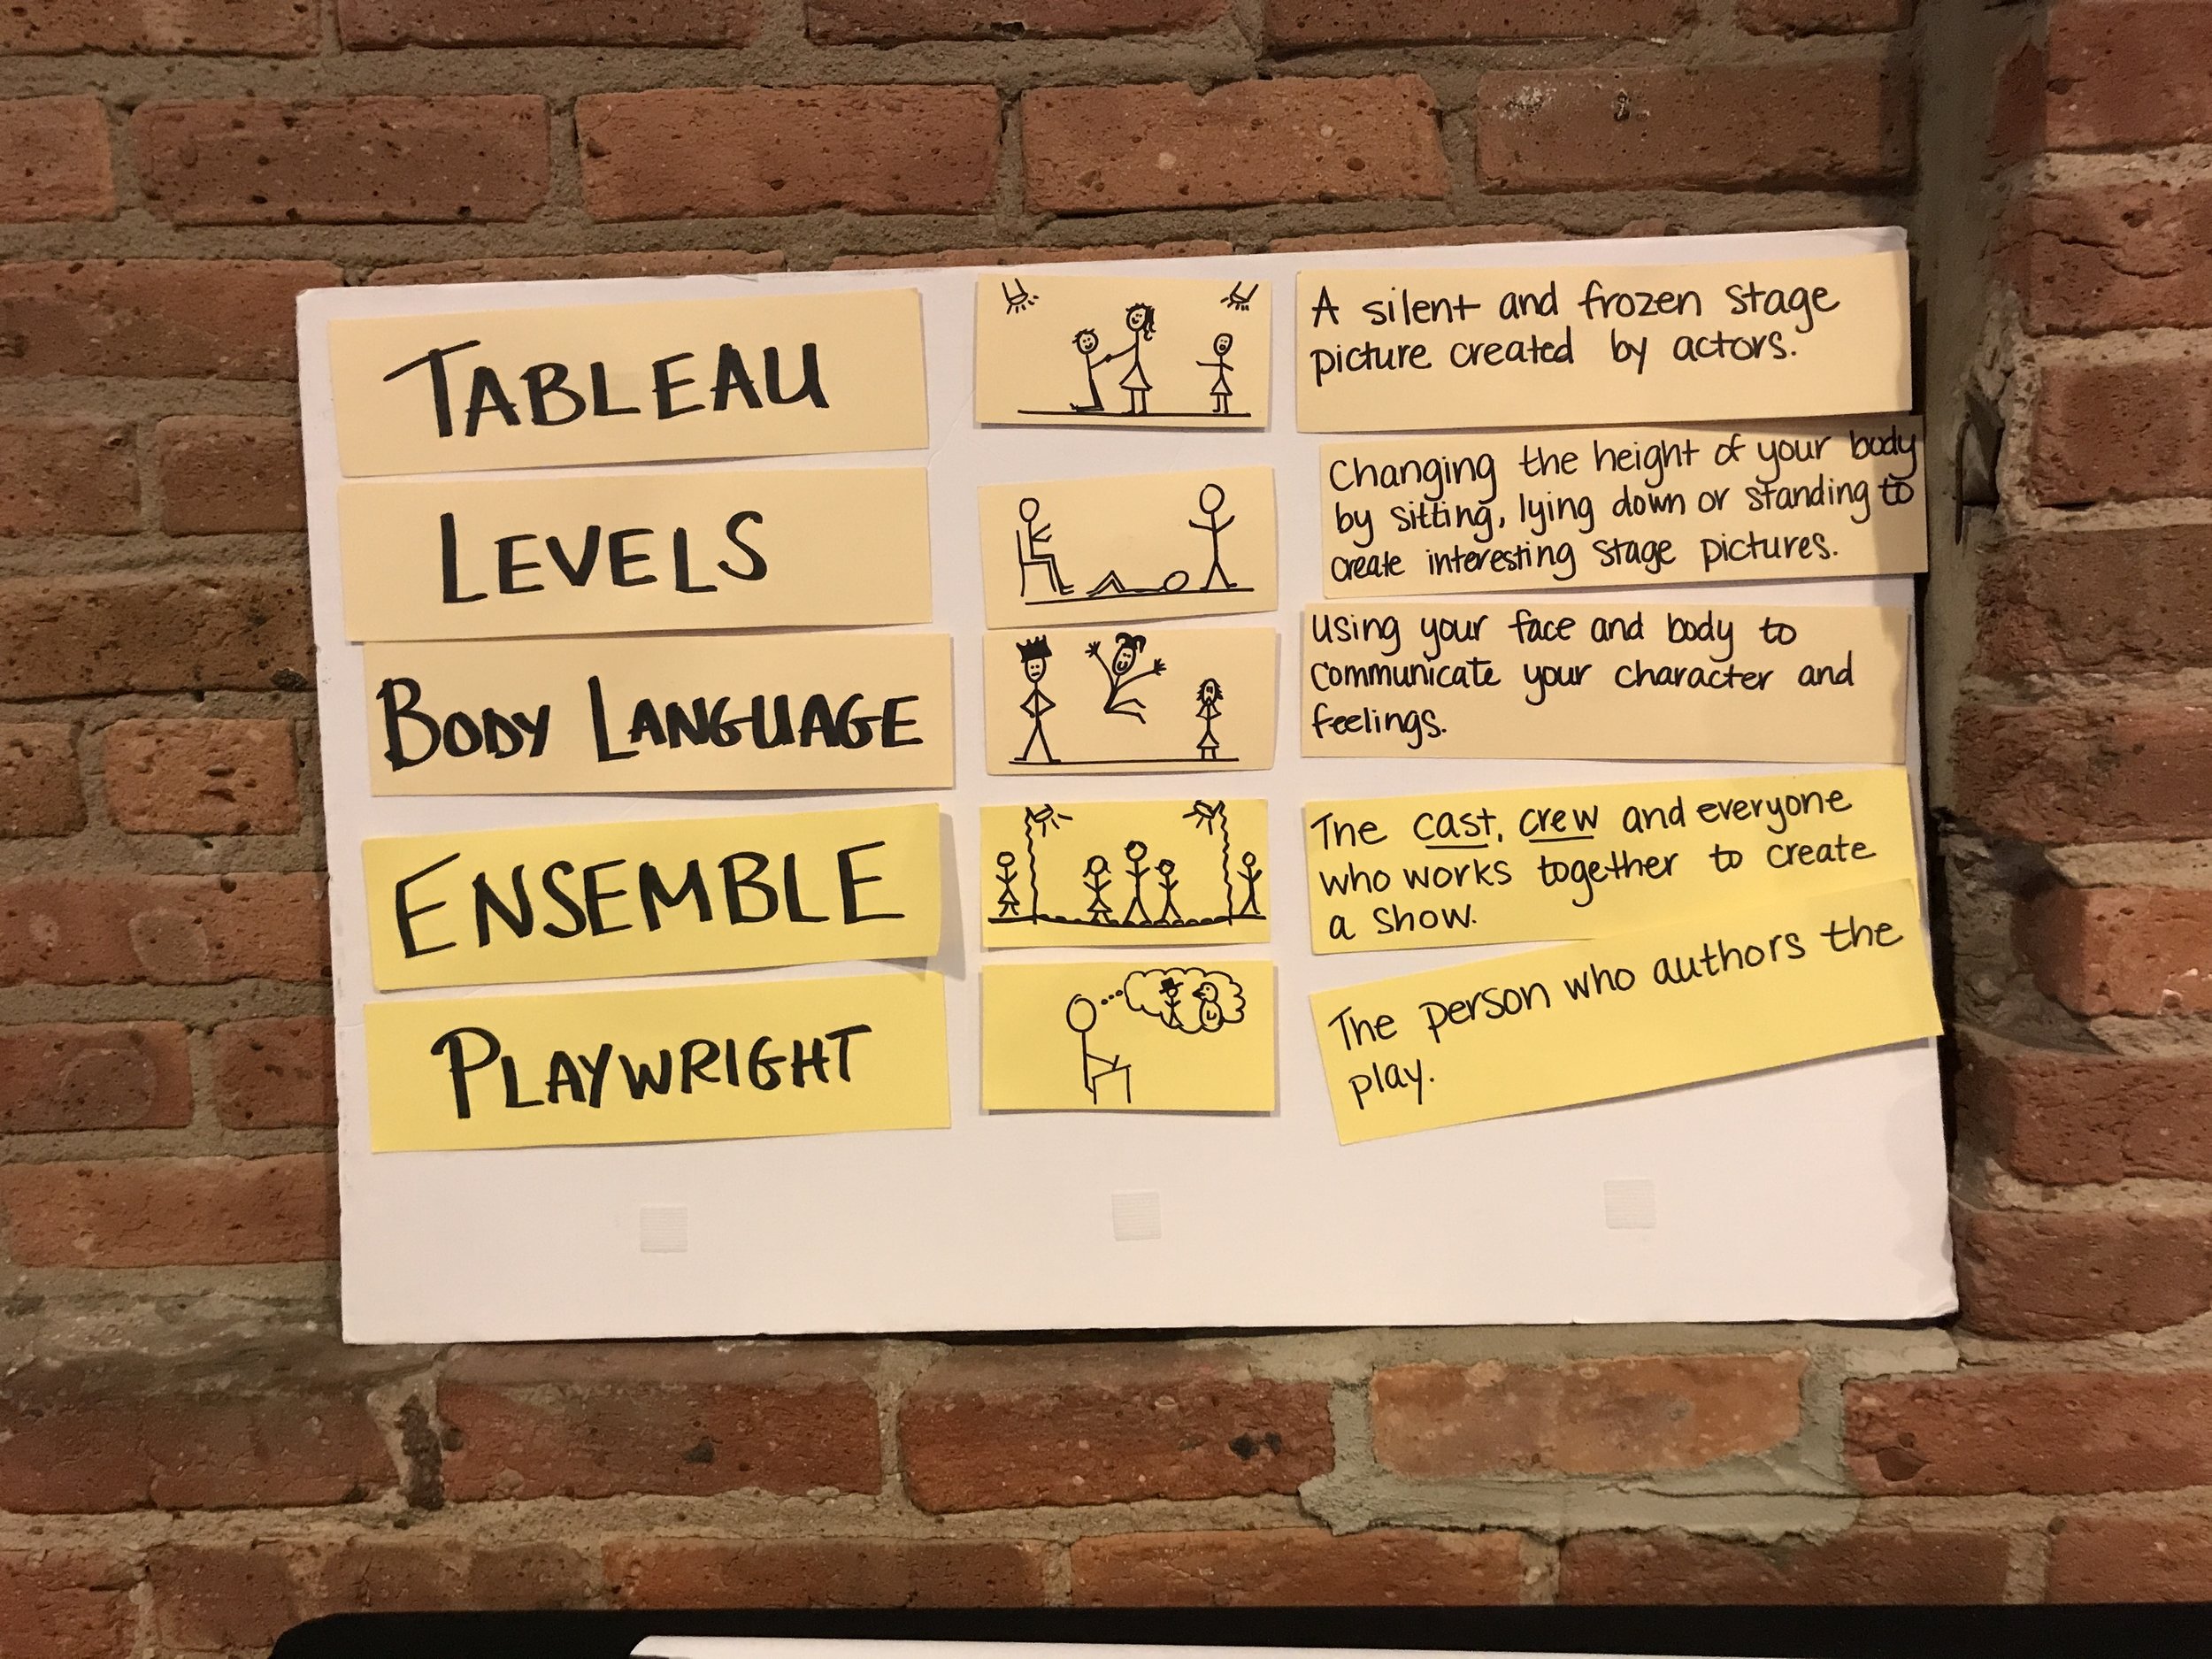 TABLEAU
A silent and frozen stage
picture created by actors.
LEVELS
Changing the height of your body
by sitting, lying down or standing to
create interesting stage pictures.
BODY LANGUAGE
Using your face and body to
communicate your character and
feelings.
ENSEMBLE
The cast, crew and everyone
who works together to create
a show.
PLAYWRIGHT
The person who authors the
play.